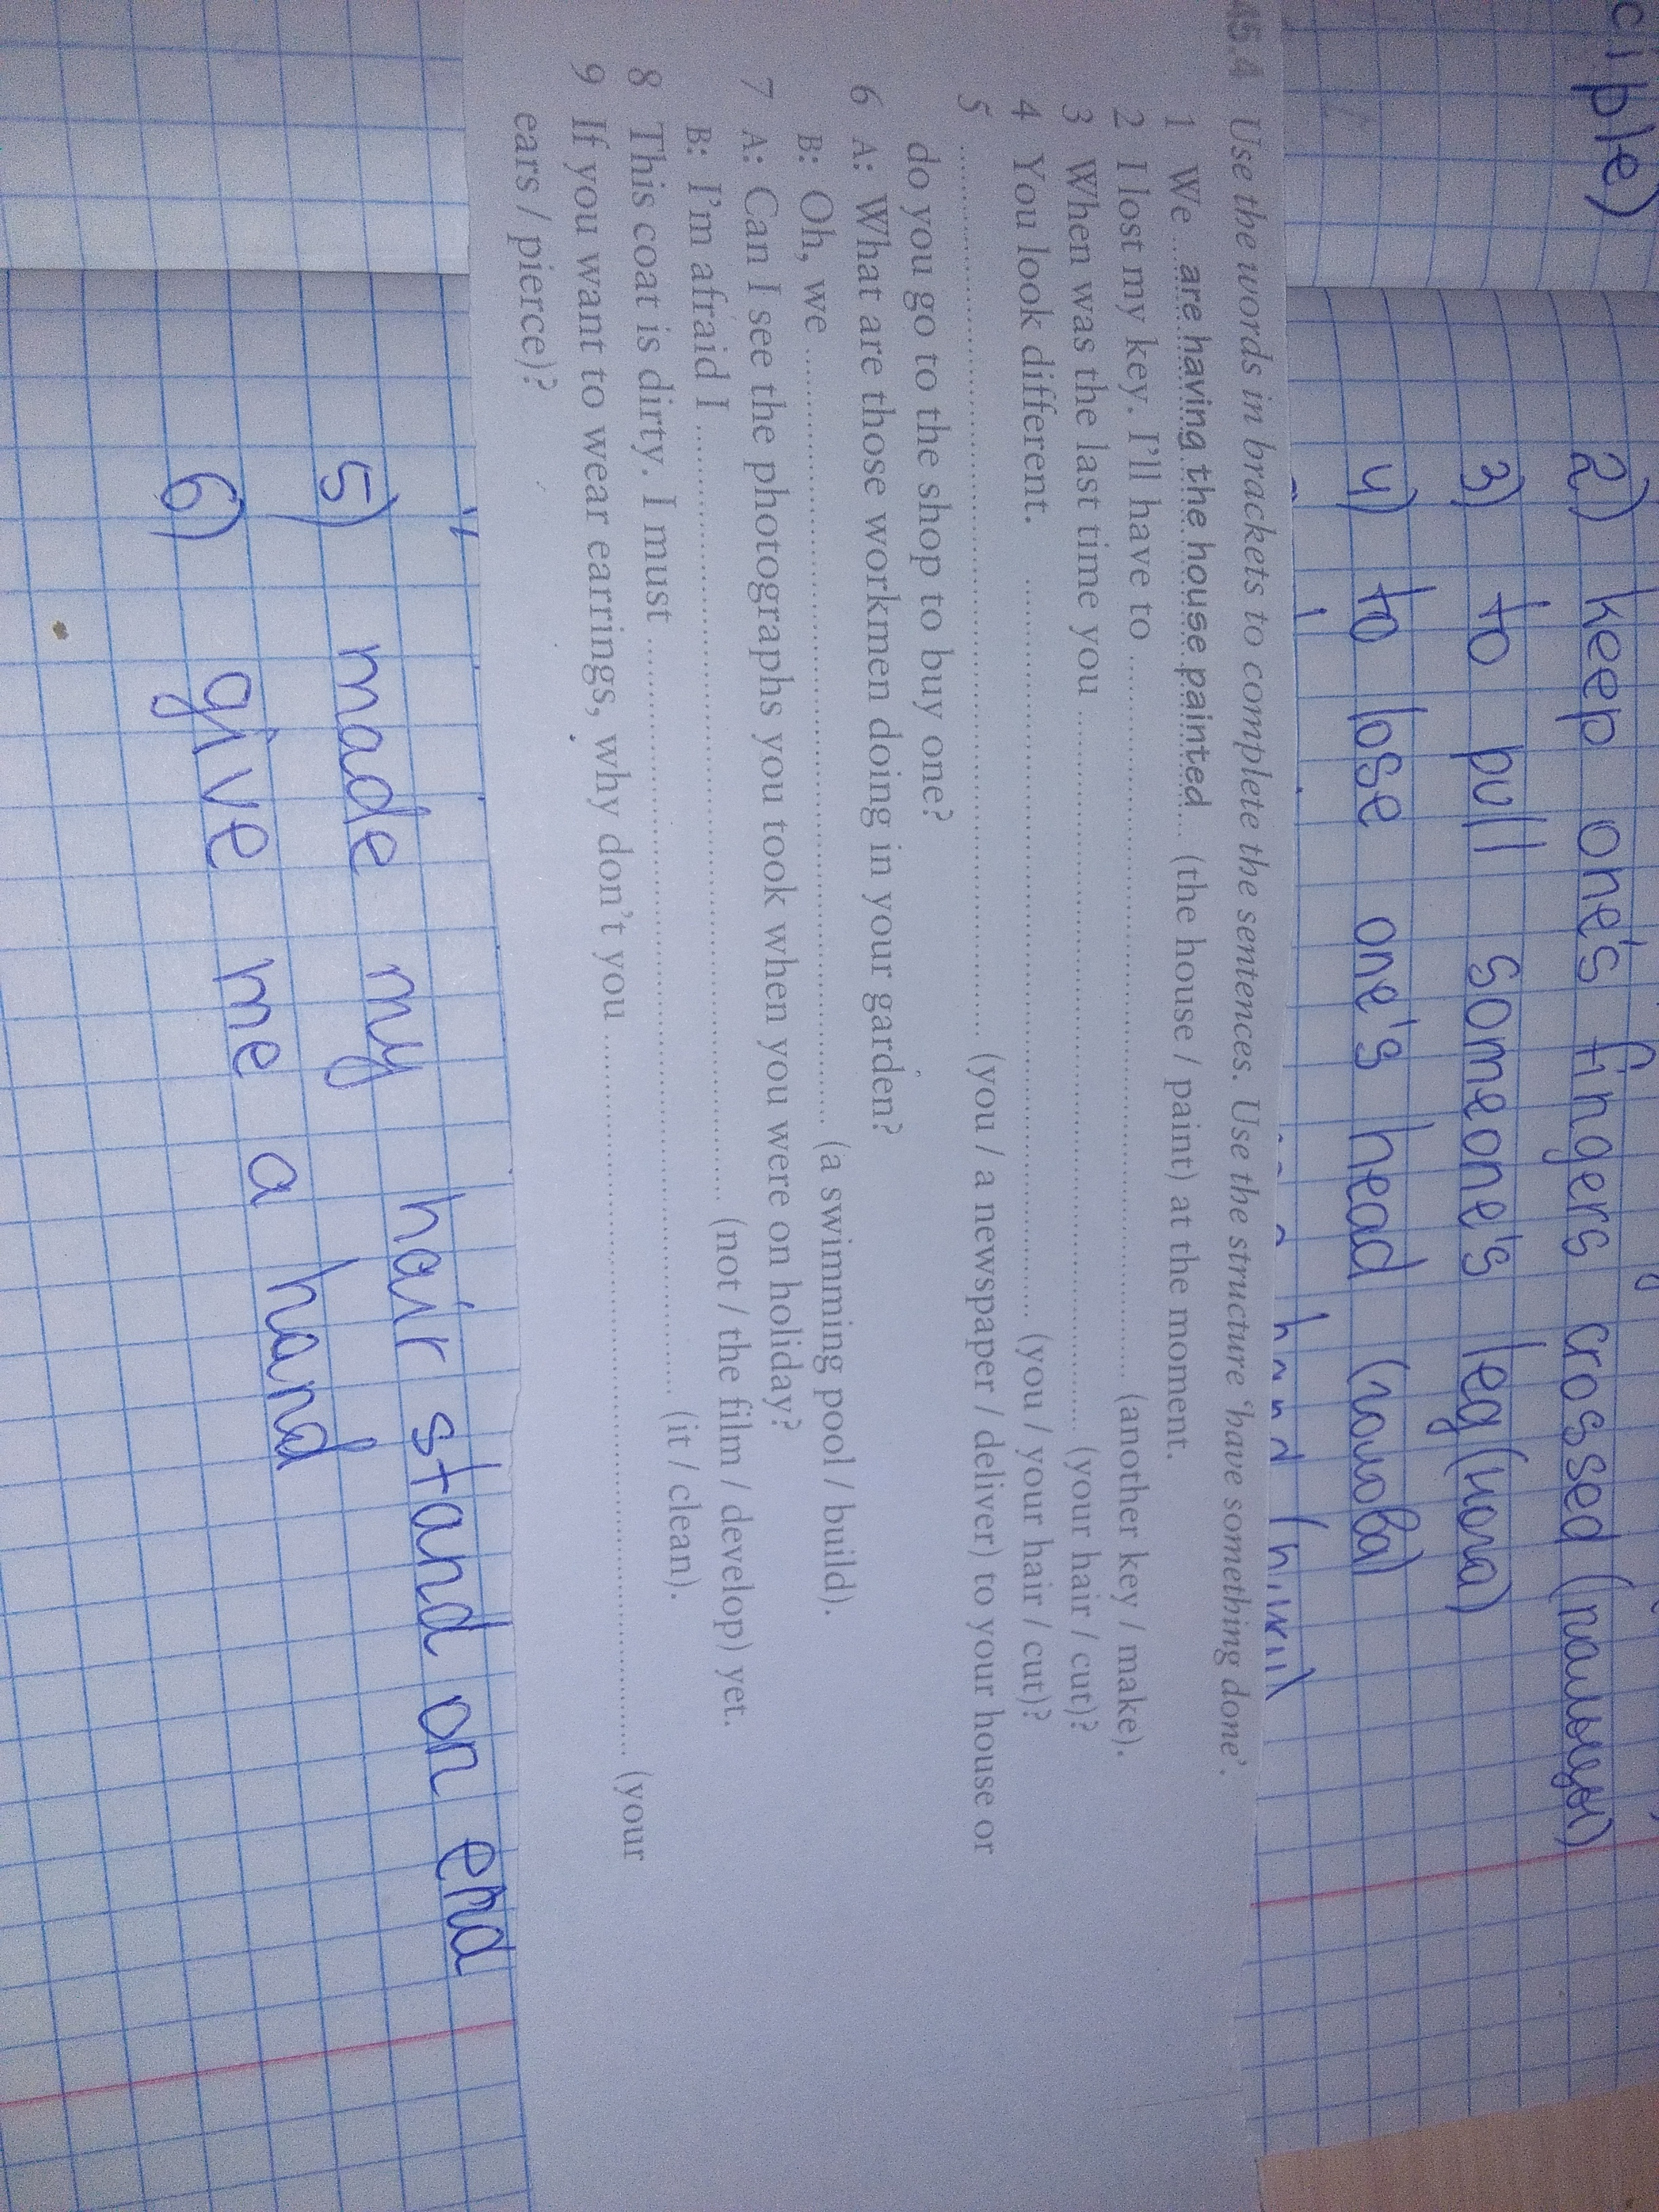 ciple)
2) keep one's fingers crossed (пальцы)
3) to pull someone's leg (нога)
4) to lose one's head (голова)
45.4 Use the words in brackets to complete the sentences. Use the structure 'have something done'.
1 We ... are having the house painted ... (the house / paint) at the moment.
2 I lost my key. I'll have to .......... (another key / make).
3 When was the last time you .......... (your hair / cut)?
4 You look different. .......... (you / your hair / cut)?
5 .......... (you / a newspaper / deliver) to your house or
do you go to the shop to buy one?
6 A: What are those workmen doing in your garden?
B: Oh, we .......... (a swimming pool / build).
7 A: Can I see the photographs you took when you were on holiday?
B: I'm afraid I .......... (not / the film / develop) yet.
8 This coat is dirty. I must .......... (it / clean).
9 If you want to wear earrings, why don't you .......... (your
ears / pierce)?
5) made my hair stand on end
6) give me a hand